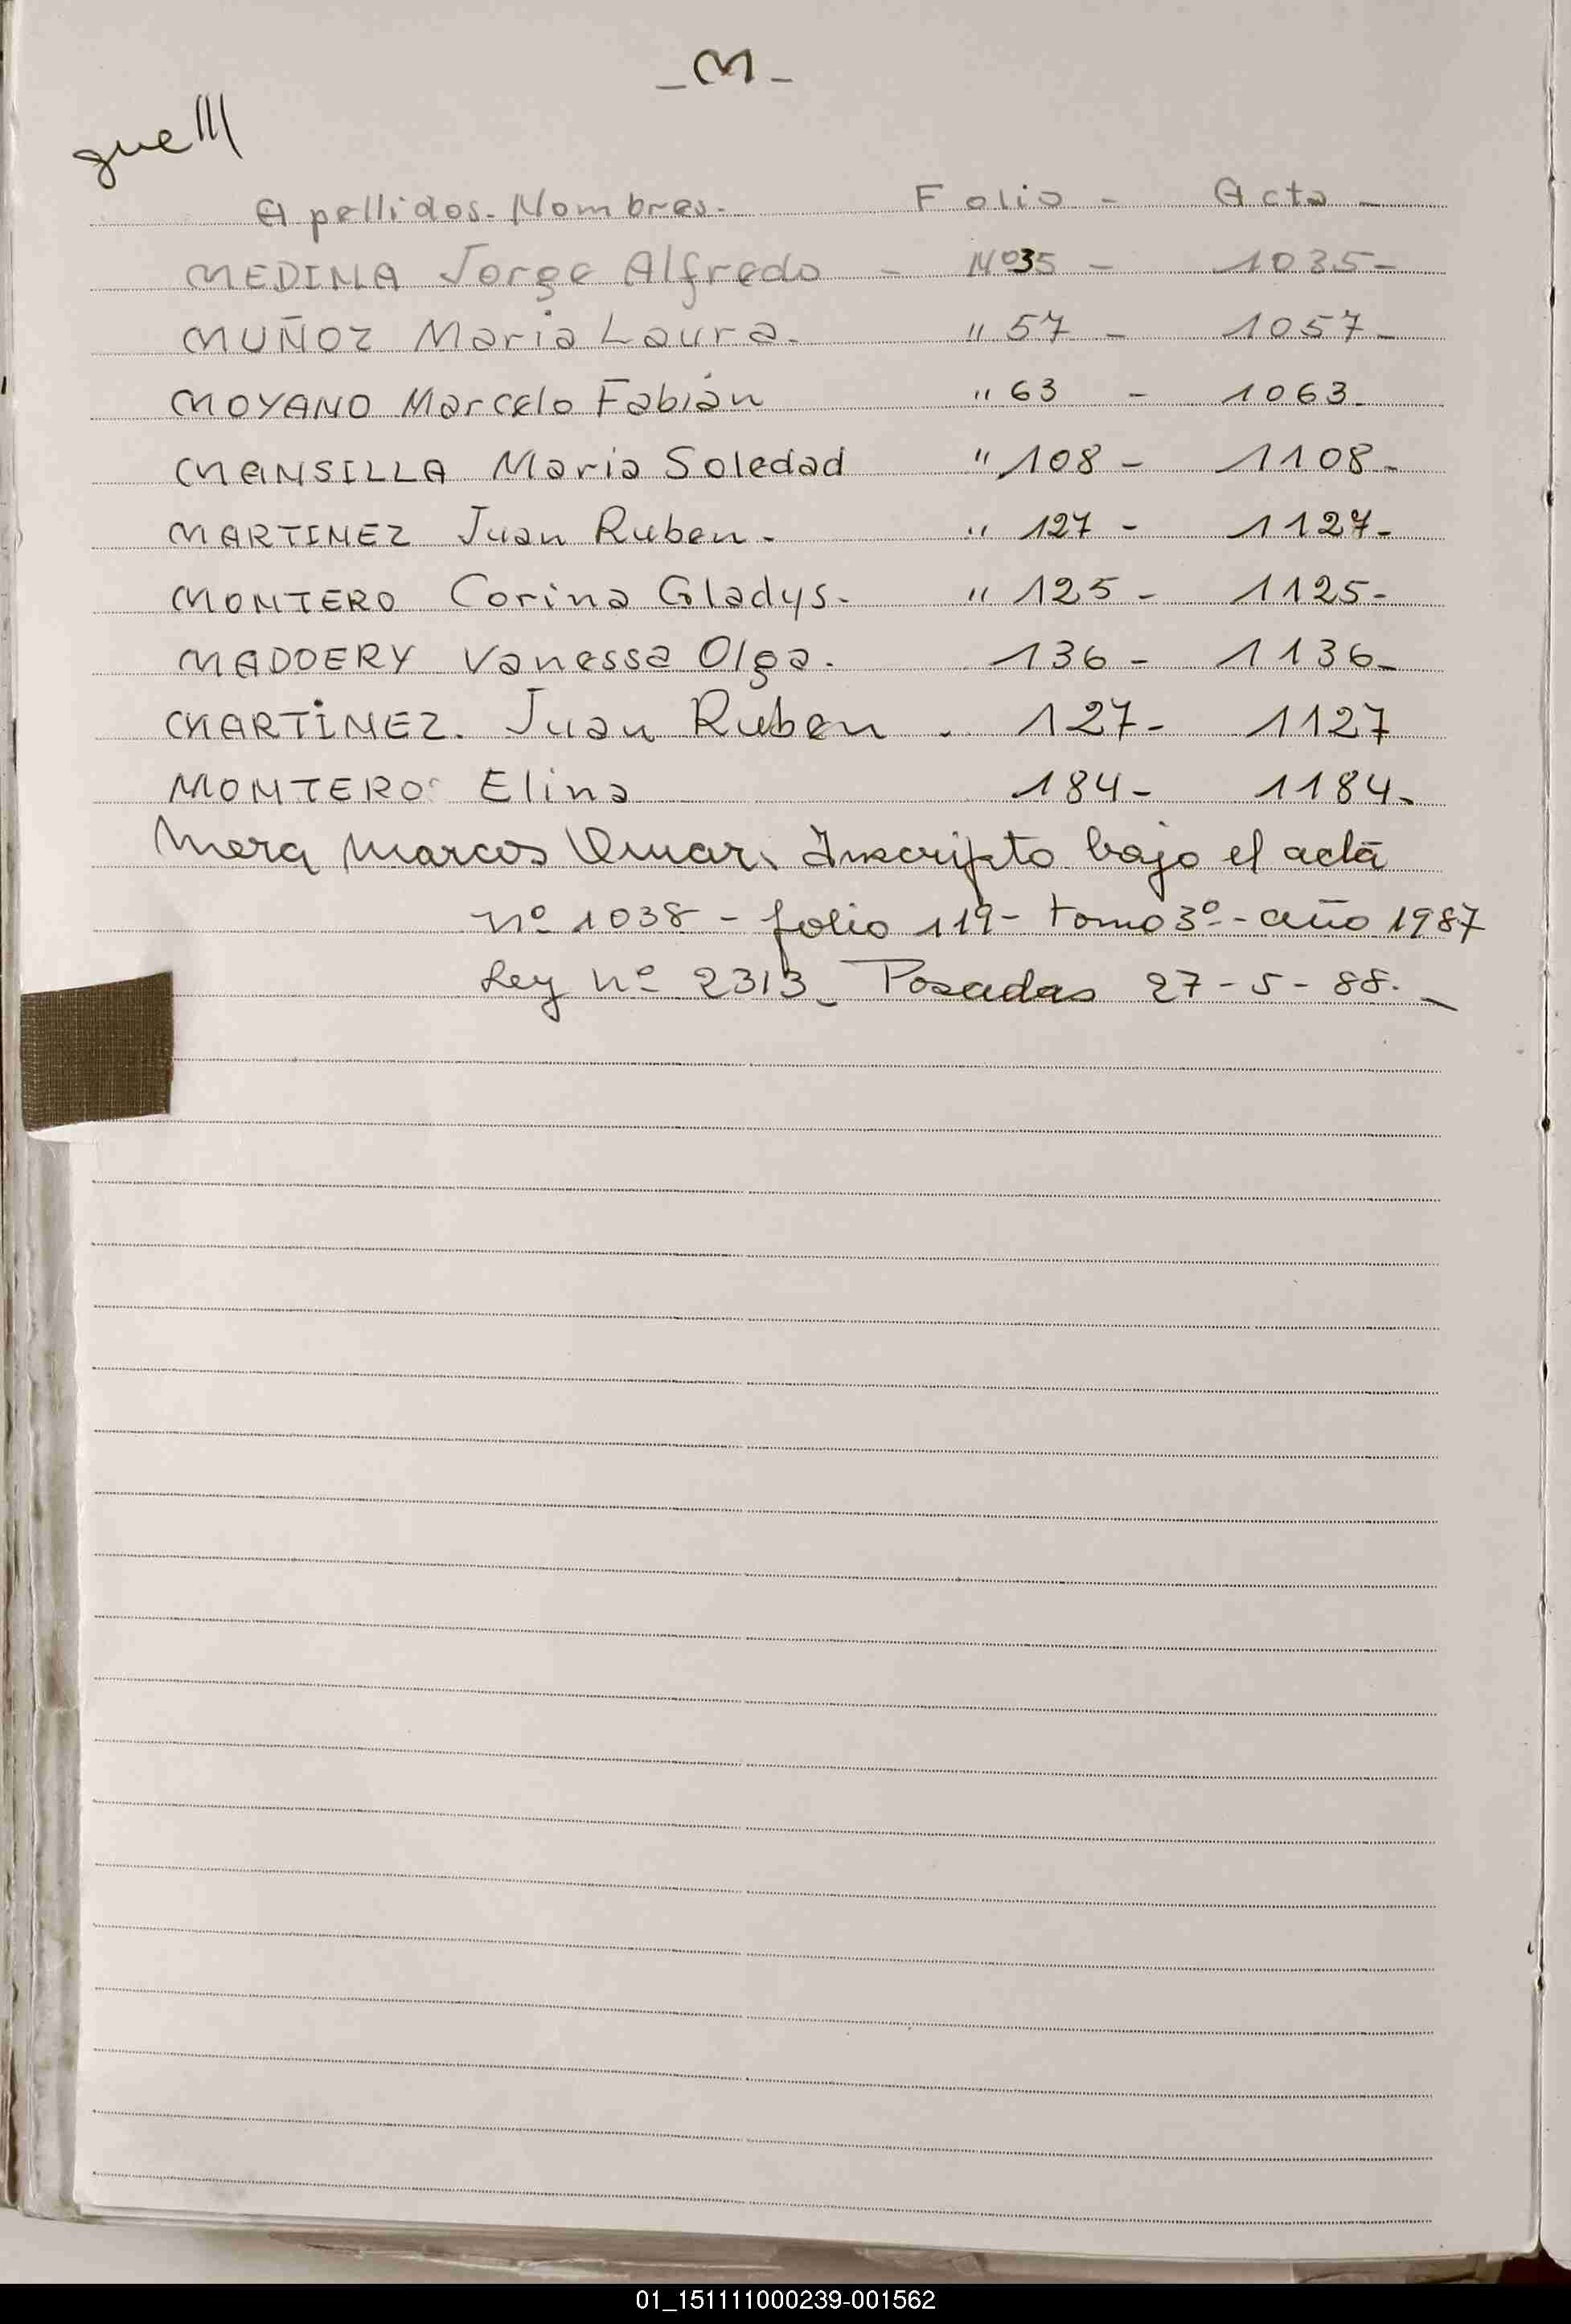 - M -
Apellidos. Nombres. Folio - Acta -
MEDINA Jorge Alfredo - Nº35 - 1035-
MUÑOZ Maria Laura. " 57 - 1057-
MOYANO Marcelo Fabián " 63 - 1063-
MANSILLA Maria Soledad " 108 - 1108-
MARTINEZ Juan Ruben. " 127 - 1127-
MONTERO Corina Gladys. " 125 - 1125-
MADDERY Vanessa Olga. 136 - 1136-
MARTINEZ. Juan Ruben . 127- 1127
MONTERO Elina 184- 1184-
Mera Marcos Omar. Inscripto bajo el acta
nº 1038 - folio 119 - tomo 3º - año 1987
Ley nº 2313 - Posadas 27-5-88.-
01_151111000239-001562